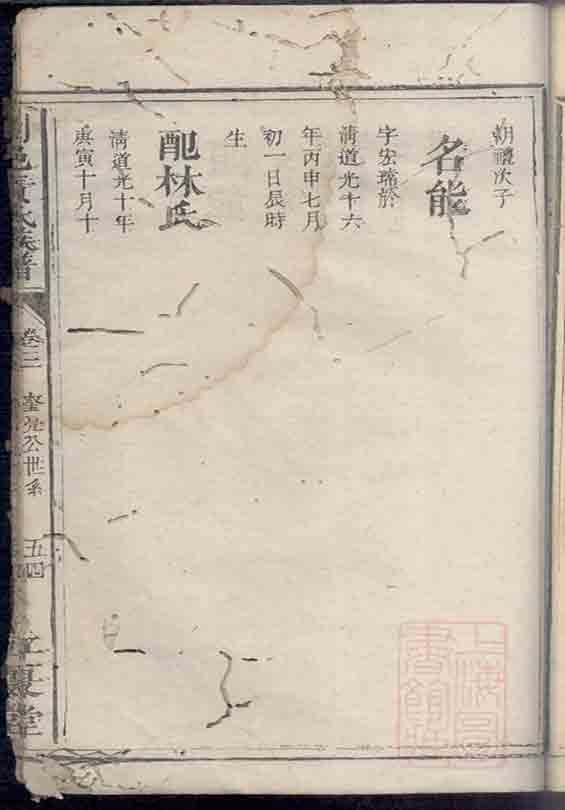 朝禮次子
名能
字宏璠於
清道光十六
年丙申七月
初一日辰時
生
配林氏
清道光十年
庚寅十月十
邑黃氏族譜
卷三
奎光公世系
五四
江夏堂
上海圖
書館藏